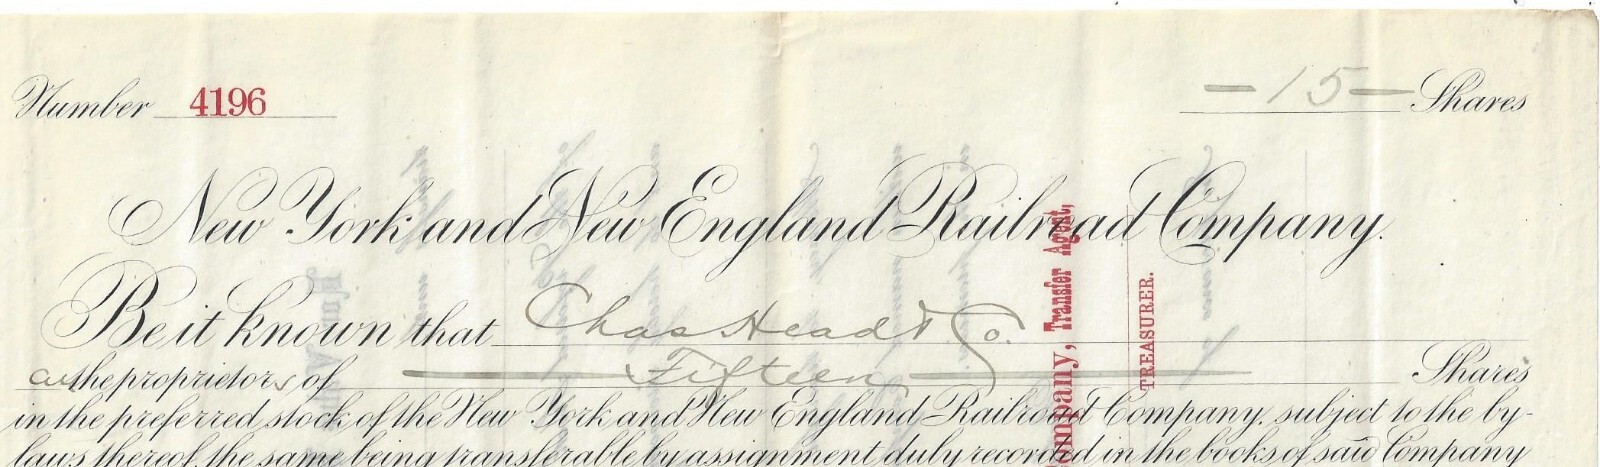 Number 4196 — 15 — Shares
New York and New England Railroad Company.
Be it known that Chas Head & Co.
are the proprietors of Fifteen Shares
in the preferred stock of the New York and New England Railroad Company, subject to the by-
laws thereof, the same being transferable by assignment duly recorded in the books of said Company
Company, Transfer Agent,
TREASURER.